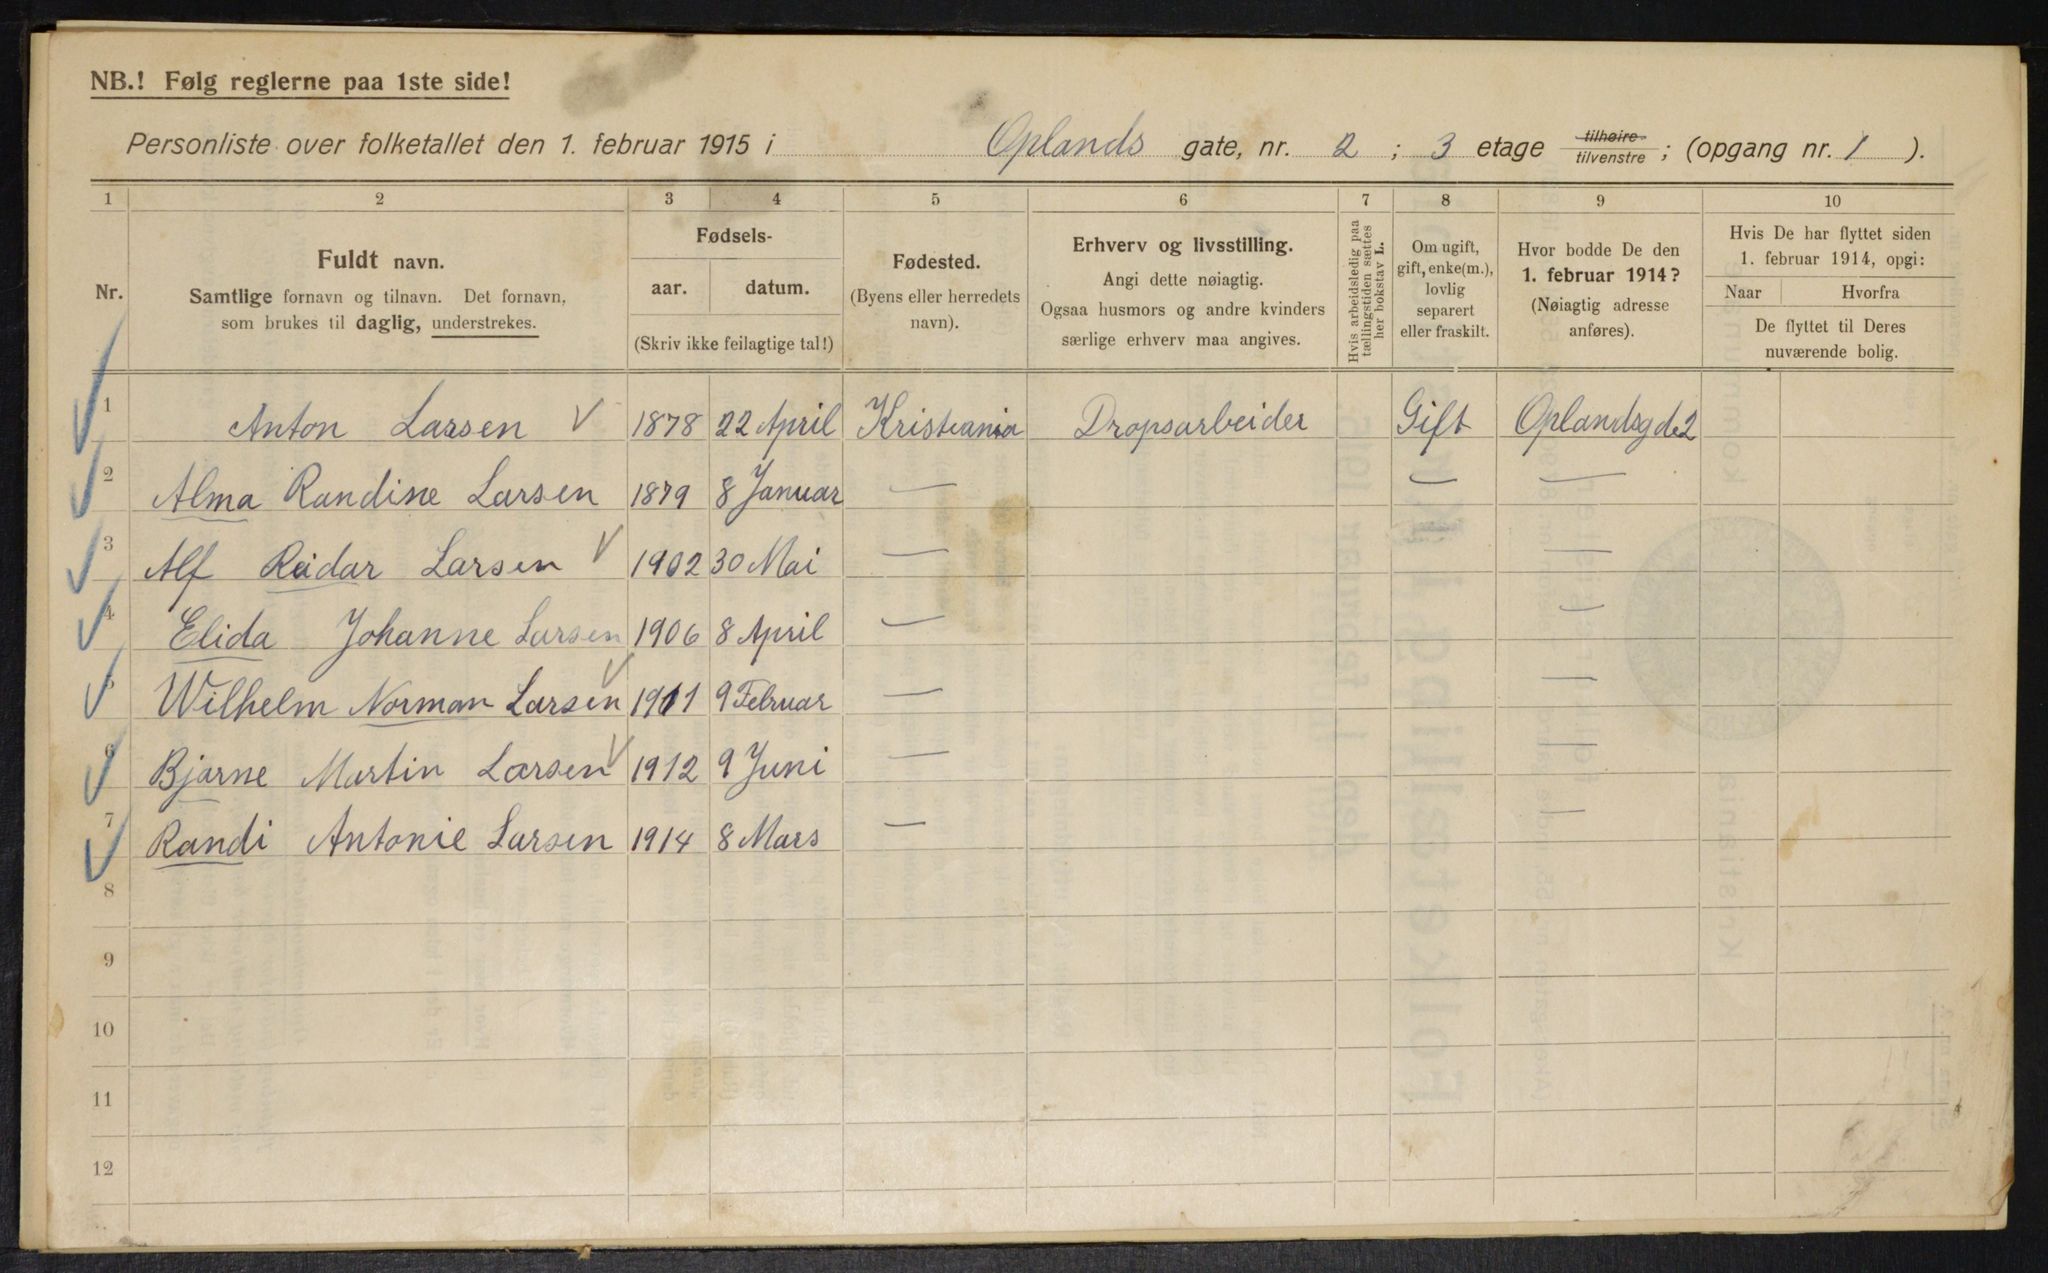 NB.! Følg reglerne paa 1ste side!
Personliste over folketallet den 1. februar 1915 i Oplands gate, nr. 2 ; 3 etage tilhøire tilvenstre ; (opgang nr. 1 ).
1 2 3 4 5 6 7 8 9 10
Nr.
Fuldt navn.
Samtlige fornavn og tilnavn. Det fornavn,
som brukes til daglig, understrekes.
Fødsels-
aar. datum.
(Skriv ikke feilagtige tal!)
Fødested.
(Byens eller herredets
navn).
Erhverv og livsstilling.
Angi dette nøiagtig.
Ogsaa husmors og andre kvinders
særlige erhverv maa angives.
Hvis arbeidsledig paa
tællingstiden sættes
her bokstav L.
Om ugift,
gift, enke(m.),
lovlig
separert
eller fraskilt.
Hvor bodde De den
1. februar 1914?
(Nøiagtig adresse
anføres).
Hvis De har flyttet siden
1. februar 1914, opgi:
Naar Hvorfra
De flyttet til Deres
nuværende bolig.
1 Anton Larsen 1878 22 April Kristiania Dropsarbeider Gift Oplandsgde 2
2 Alma Randine Larsen 1879 8 Januar — — —
3 Alf Reidar Larsen 1902 30 Mai — —
4 Elida Johanne Larsen 1906 8 April — —
5 Wilhelm Norman Larsen 1911 9 Februar — —
6 Bjarne Martin Larsen 1912 9 Juni — —
7 Randi Antonie Larsen 1914 8 Mars — —
8
9
10
11
12